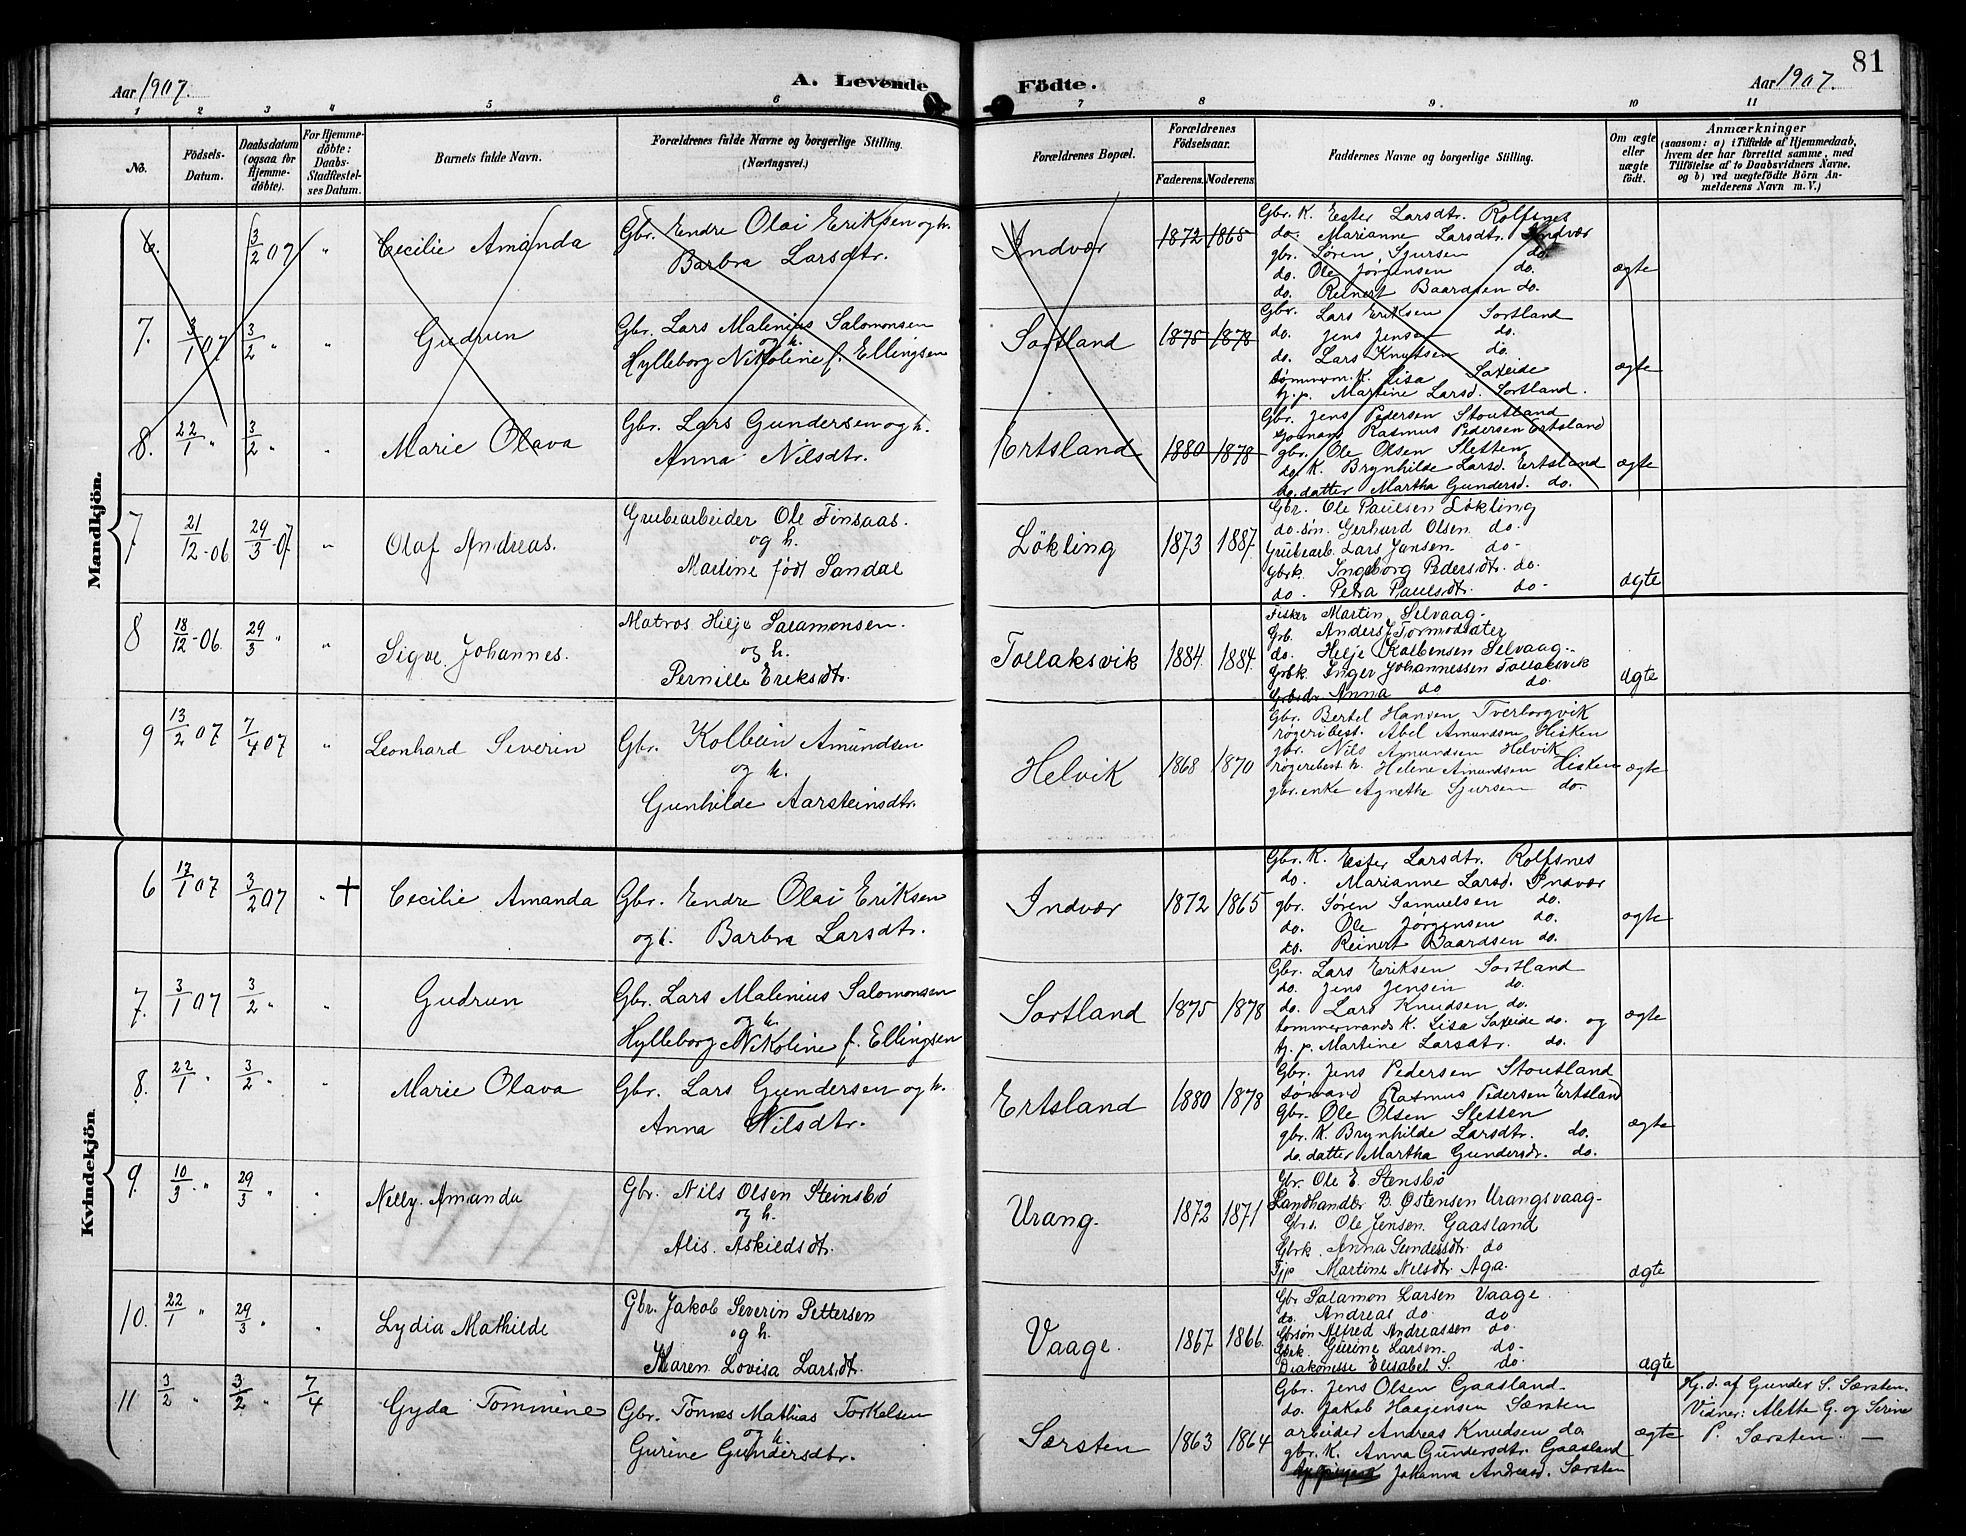 Aar 1907.
A. Levende
Födte.
Aar 1907.
81
1 2 3 4 5 6 7 8 9. 10 11
No.
Födsels-Datum.
Daabsdatum (ogsaa for Hjemmedöbte).
For Hjemmedöbte: Daabs-Stadfestelses Datum.
Barnets fulde Navn.
Forældrenes fulde Navne og borgerlige Stilling. (Næringsvei.)
Forældrenes Bopæl.
Forældrenes Födselsaar.
Faderens. Moderens.
Faddernes Navne og borgerlige Stilling.
Om ægte eller uægte födt.
Anmærkninger
(saasom: a) i Tilfælde af Hjemmedaab, hvem der har forrettet samme, med Tilföielse af to Daabsvidners Navne, og b) ved uægtefödte Börn Anmelderens Navn m. V.)
Mandkjön.
6. 3/2 07 " Cecilie Amanda
Gbr. Endre Olai Eriksen og h.
Barbra Larsdtr.
Indvær 1872 1865
Gbr. K. Ester Larsdtr. Rolfsnes
do. Marianne Larsdtr. Indvær
gbr. Sören Sjursen do.
do. Ole Jörgensen do.
do. Reinert Baardsen do.
ægte
7. 3/1 07 3/2 " " Gudrun
Gbr. Lars Malenius Salomonsen
og h.
Hylleborg Nikoline f. Ellingsen
Sortland 1875 1878
Gbr. Lars Eriksen Sortland
do. Jens Jensen do.
do. Lars Knutsen do.
tömmerm. K. Lisa Saxeide
tj. p. Martine Larsd. Sortland.
ægte
8. 22/1 " 3/2 " " Marie Olava
Gbr. Lars Gundersen og h.
Anna Nilsdtr.
Ertsland 1880 1878
Gbr. Jens Pedersen Stoutland
Rasmus Pedersen Ertsland
gbr. Ole Olsen Sletten
do. K. Brynhilde Larsd. Ertsland
do. datter Martha Gundersd. do.
ægte
7 21/12-06 29/3-07 " Olaf Andreas.
Grubearbeider Ole Finsaas.
og h.
Martine født Sandal
Lökling 1873 1887
Gbr. Ole Paulsen Lökling
do. søn. Gerhard Olsen do.
Grubearb. Lars Jansen do-
Gbrk. Ingeborg Pedersdtr. do.
do- Petra Paulsdtr. do-
ægte
8 18/12-06 29/3 " " Sigve Johannes.
Matros Hilje Salamonsen.
og h.
Pernille Eriksdtr.
Tollaksvik 1884 1884.
Fisker Martin Selvaag-
Grb. Anders Tormodsæter
do. Helje Kolbensen Selvaag-
Grbk. Inger Johannessen Tollaksvik
Anna do do.
ægte
9 13/2 07 7/4 07 " Leonhard Severin
Gbr. Kolbein Amundsen
og h.
Gunhilde Aarsteinsdtr.
Helvik 1868 1870
Gbr. Bertel Hansen Tverborgvik
røgeribest. Abel Amundsen Hisken
gbr. Nils Amundsen Helvik
røgeribest. h. Helene Amundsen Hisken
gbr. enke Agnethe Sjursen do-
ægte
Kvindekjön.
6 17/1 07 3/2 07 " + Cecilie Amanda
Gbr. Endre Olai Eriksen
og h. Barbra Larsdtr.
Indvær 1872 1865
Gbr. K. Ester Larsdtr. Rolfsnes
do. Marianne Larsd. Indvær
gbr. Sören Samuelsen do.
do. Ole Jörgensen do.
do. Reinert Baardsen do.
ægte
7. 3/1 07 3/2 " " Gudrun
Gbr. Lars Malenius Salomonsen
og h.
Hylleborg Nikoline f. Ellingsen
Sortland 1875 1878
Gbr. Lars Eriksen Sortland
do. Jens Jensen do.
do. Lars Knudsen do.
tommermands K. Lisa Saxeide do. og
tj. p. Martine Larsdtr. do.
ægte
8. 22/1 " 3/2 " " Marie Olava
Gbr. Lars Gundersen og h.
Anna Nilsdtr.
Ertsland 1880 1878
Gbr. Jens Pedersen Stoutland
sømand Rasmus Pedersen Ertsland
Gbr. Ole Olsen Sletten
gbr. K. Brynhilde Larsdtr. do.
do. datter Martha Gundersdr. do.
ægte
9. 10/3 " 29/3 " " Nelly Amanda
Gbr. Nils Olsen Steinsbö
og h.
Alis. Askildsdtr.
Urang. 1872 1871
Gbr. Ole E. Stensbö
Landhandler B. Østensen Urangsvaag-
Gbr. Ole Jensen Gaasland
Gbrk. Anna Gundersdtr. do
Tjp Martine Nilsdtr. Aga.
ægte
10. 22/1 " 29/3 " " Lydia Mathilde
Gbr. Jakob Severin Pettersen
og h.
Karen Lovisa Larsdtr.
Vaage. 1867 1866.
Gbr Salamon Larsen Vaage.
do. Andreas do do
Gbrsøn Alfred Andreassen do.
Gbrk. Gurine Larsen do-
Diakonisse Elisabet S. do.
ægte
11 3/2 " 3/2 " 7/4 Gyda Tommine
Gbr. Tönnes Mathias Torkelsen
og h.
Gurine Gundersdtr.
Særsten 1863 1864
Gbr. Jens Olsen Gaasland
do. Jakob Haagensen Særsten
arbeider Andreas Knudsen do
gbr. K. Anna Gundersdtr. Gaasland
Johanna Andreasd. Særsten
ægte
Hj. d. af Gunder S. Særsten.
Vidner: Alette G. og Serine
P. Særsten. —